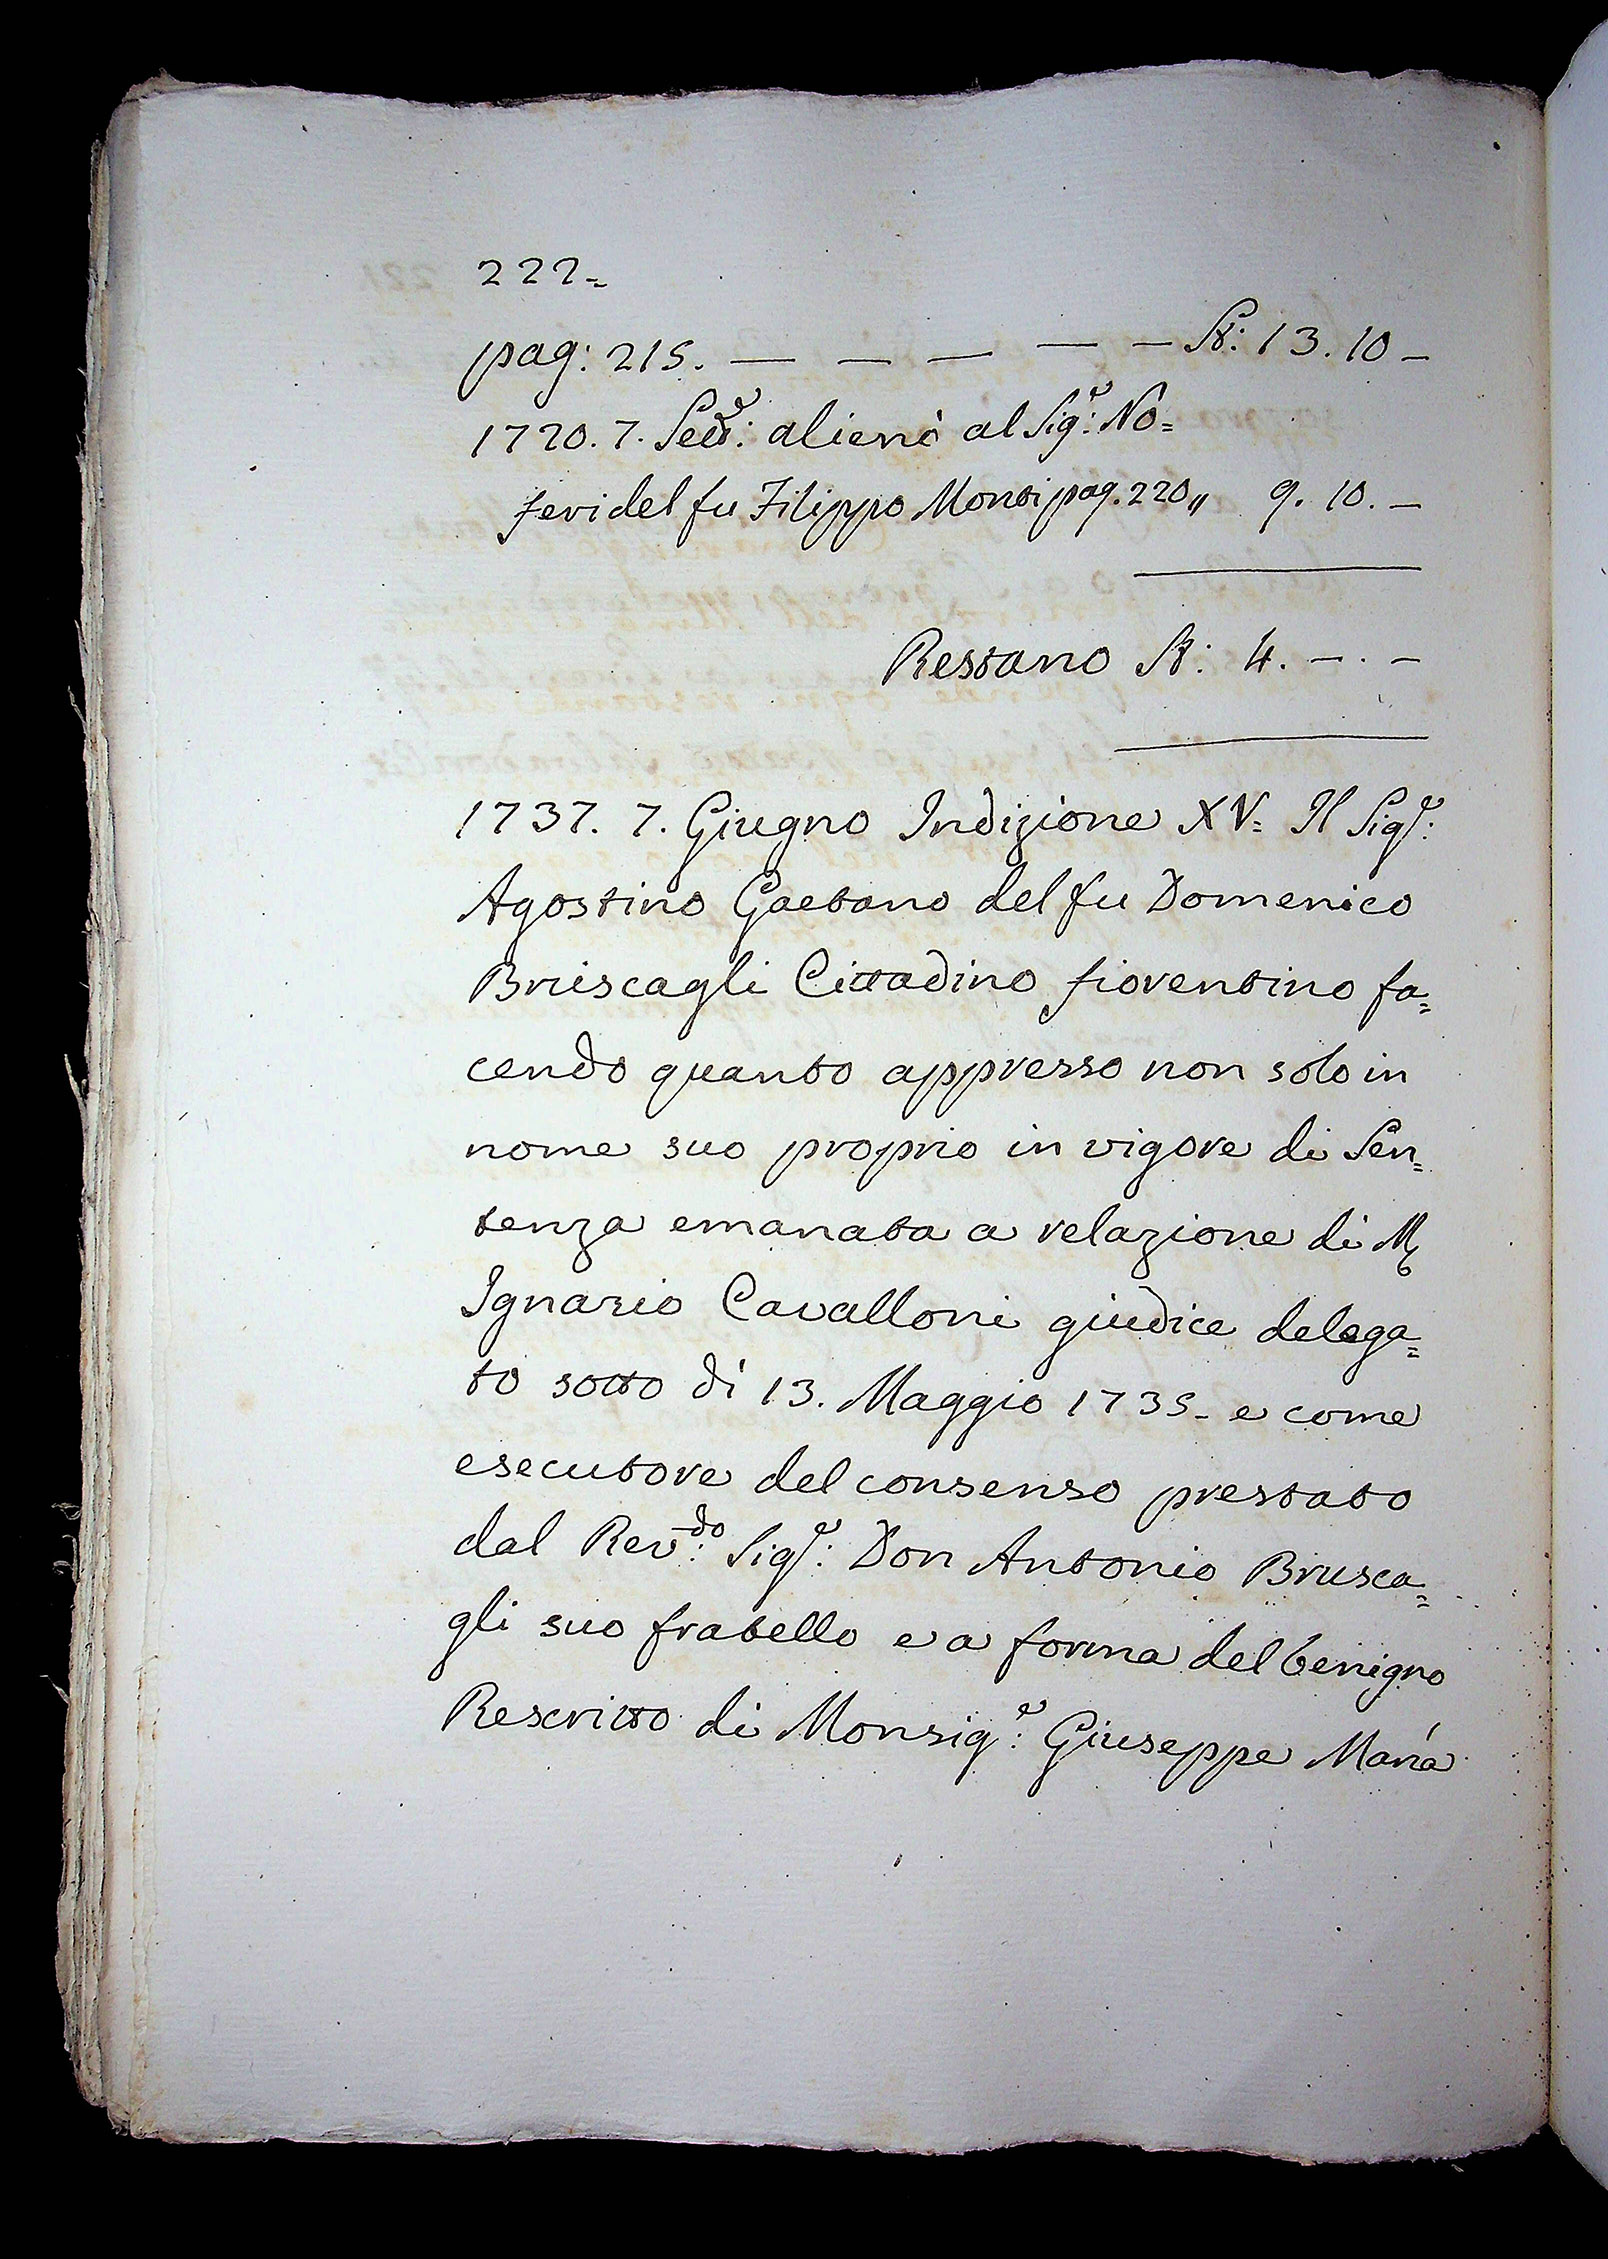 222=
pag: 215. — — — — — St: 13. 10 —
1720. 7. Sett.e: alienò al Sig.e: No=
feri del fu Filippo Monti pag. 220 „ 9. 10. —
Restano St: 4. —. —
1737. 7. Giugno Indizione XV= Il Sig.e:
Agostino Gaetano del fu Domenico
Bruscagli Cittadino fiorentino fa=
cendo quanto appresso non solo in
nome suo proprio in vigore di Sen=
tenza emanata a relazione di M
Ignazio Cavalloni giudice delega=
to sotto dì 13. Maggio 1735- e come
esecutore del consenso prestato
dal Rev.do: Sig.e: Don Antonio Brusca=
gli suo fratello e a forma del benigno
Rescritto di Monsig.e: Giuseppe Maria